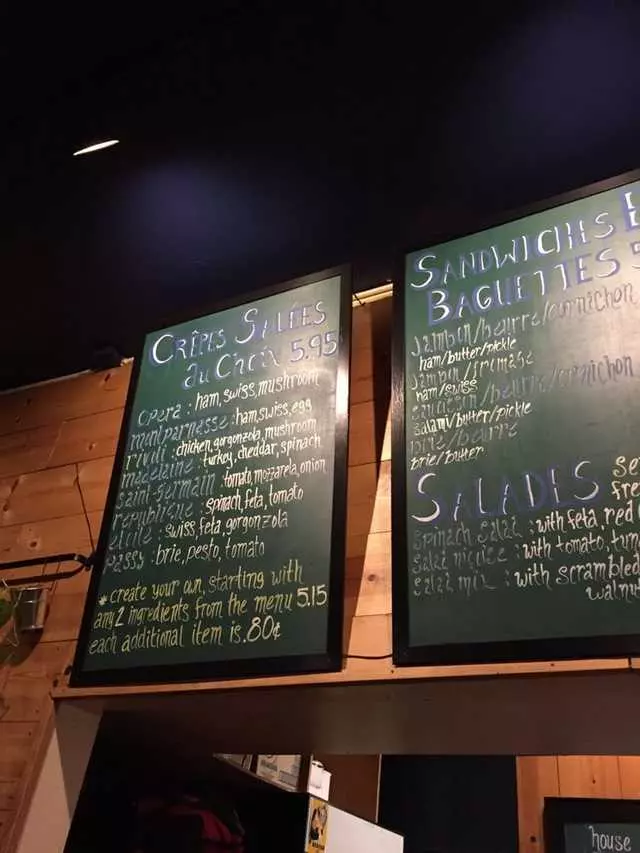 CRÊPES SALÉES
au Choix 5.95
opera : ham, swiss, mushroom
montparnasse : ham, swiss, egg
rivoli : chicken, gorgonzola, mushroom
madeleine : turkey, cheddar, spinach
saint-germain : tomato, mozzarela, onion
republique : spinach, feta, tomato
etoile : swiss, feta, gorgonzola
passy : brie, pesto, tomato
* create your own, starting with
any 2 ingredients from the menu 5.15
each additional item is .80¢
SANDWICHES
BAGUETTES 5
jambon/beurre/cornichon
ham/butter/pickle
jambon/fromage
ham/swiss
saucisson/beurre/cornichon
salami/butter/pickle
brie/beurre
brie/butter
SALADES
spinach salad : with feta, red
salad niçoise : with tomato,
salad mix : with scrambled
house